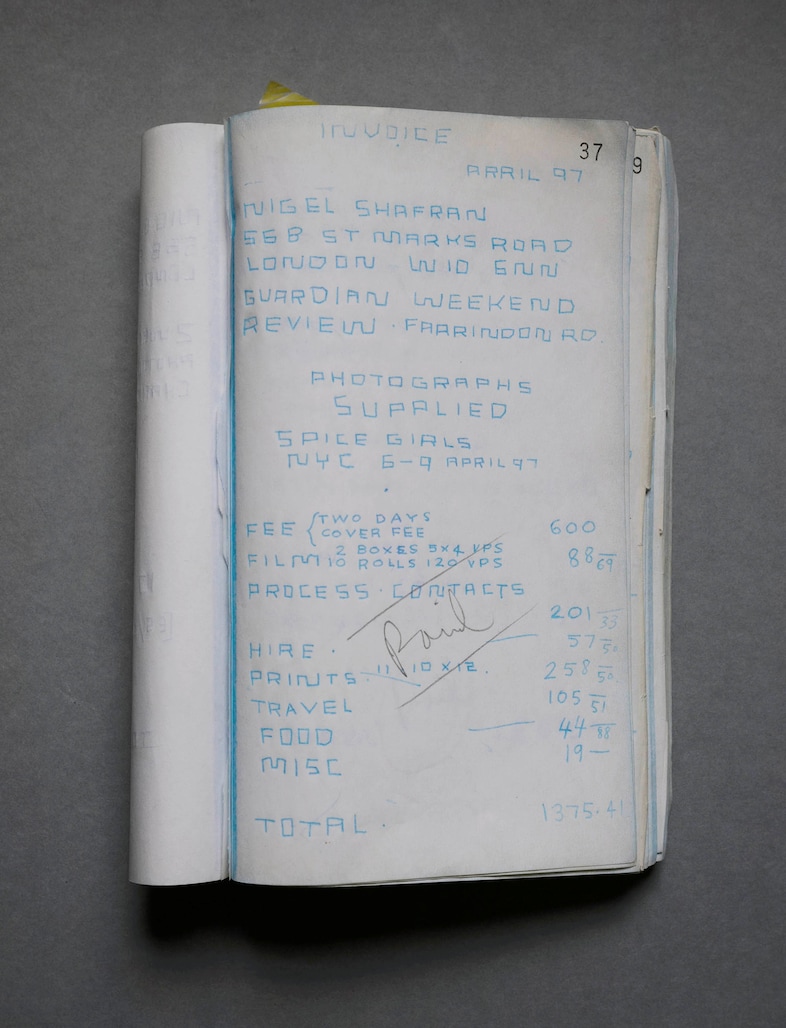 INVOICE
37
9
APRIL 97
NIGEL SHAFRAN
55B ST MARKS ROAD
LONDON W10 6NN
GUARDIAN WEEKEND
REVIEW · FARRINDON RD.
PHOTOGRAPHS
SUPPLIED
SPICE GIRLS
NYC 6-9 APRIL 97
FEE { TWO DAYS
COVER FEE 600
2 BOXES 5x4 VPS
FILM 10 ROLLS 120 VPS 88 69
PROCESS · CONTACTS
201 33
Paid
HIRE · 57 50
PRINTS 11 10 x 12. 258 50
TRAVEL 105 51
FOOD 44 88
MISC 19 —
TOTAL. 1375.41